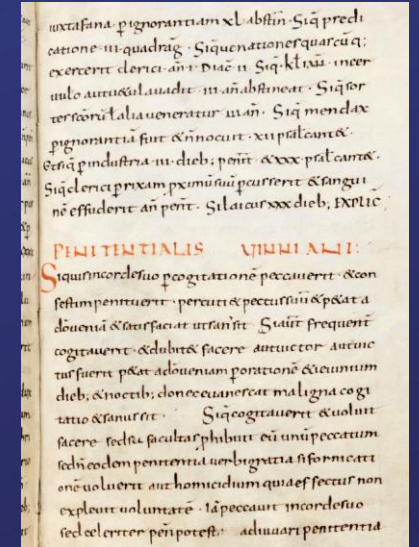 iuxta fana · p ignorantiam xl abstin · Siq̄ predi
catione · iii · quadrag̃ · Siquenationes quascūq;
exercerit clerici · an̄ i · Diac̄ ii · Siq̄ · kl̄ ·
· iii · an̄ abstineat · Siq̄ sor
alia veneratur · iii an̄ · Siq̄ mendax
p ignorantia fuit & n̄ nocuit · xii psal̃ cant& ·
Etsiq̄ p industria · iii · dieb; penit̃ & xxx · psal̃ cant& ·
Siq̄ clerici p rixam pximū suū pcusserit & sangui
nē effuderit an̄ penit̃ · Si laicus xxx dieb; EXPLIC̃
PENITENTIALIS VINNIANI:
Siquis in corde suo p cogitationē peccaverit · & con
festim penituerit · percuti& pectus suū & p&at a
dō veniā & satisfaciat ut san' sit · Siaut̃ frequent̃
cogitaverit · & dubit& facere aut victor aut vic
tus fuerit p&at a dō veniam p orationē & ieiunium
dieb; & noctib; donec evanescat maligna cogi
tatio & sanus sit · Siq̄ cogitaverit & voluit
facere sed si facultas phibuit eū unū peccatum
sed n̄ eodem penitentia verbi gratia si fornicati
onē voluerit aut homicidium quia effectus non
explevit voluntatē · Iā peccavit in corde suo
sed celeriter pen̄ potest · adiuvari penitentia